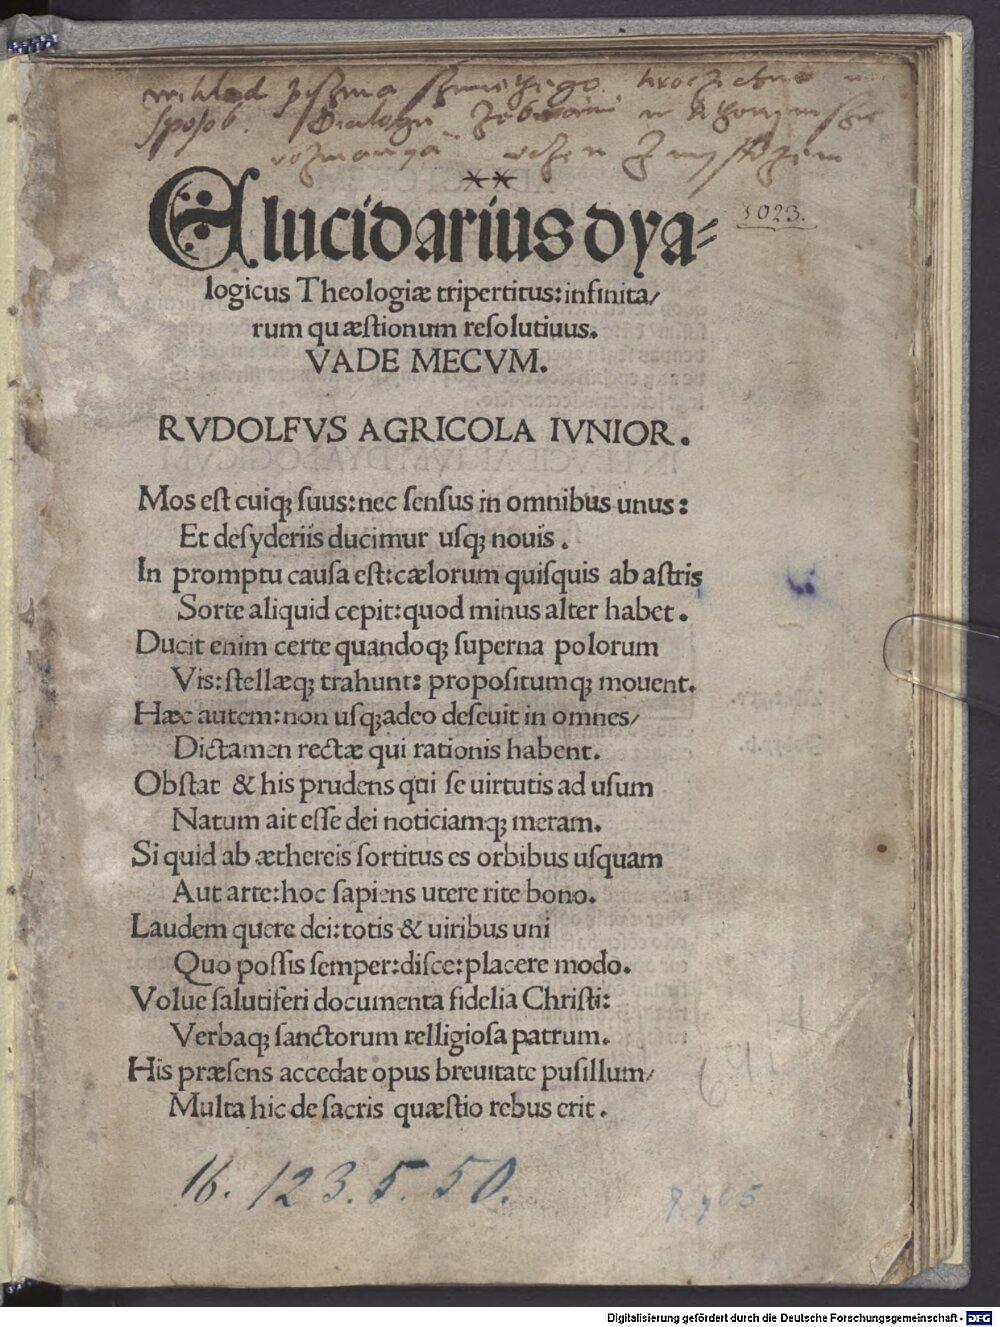 sposob.
Elucidarius dya-
1023.
logicus Theologiæ tripertitus: infinita/
rum quæstionum resolutiuus.
VADE MECVM.
RVDOLFVS AGRICOLA IVNIOR.
Mos est cuiqꝫ suus: nec sensus in omnibus unus:
Et desyderiis ducimur usqꝫ nouis.
In promptu causa est: cælorum quisquis ab astris
Sorte aliquid cepit: quod minus alter habet.
Ducit enim certe quandoqꝫ superna polorum
Vis: stellæqꝫ trahunt: propositumqꝫ mouent.
Hæc autem: non usqꝫadeo deseuit in omnes/
Dictamen rectæ qui rationis habent.
Obstat & his prudens qui se uirtutis ad usum
Natum ait esse dei noticiamqꝫ meram.
Si quid ab æthereis sortitus es orbibus usquam
Aut arte: hoc sapiens utere rite bono.
Laudem quere dei: totis & uiribus uni
Quo possis semper: disce: placere modo.
Volue salutiferi documenta fidelia Christi:
Verbaqꝫ sanctorum relligiosa patrum.
His præsens accedat opus breuitate pusillum/
Multa hic de sacris quæstio rebus erit.
16. 123. 5. 50.
Digitalisierung gefördert durch die Deutsche Forschungsgemeinschaft - DFG